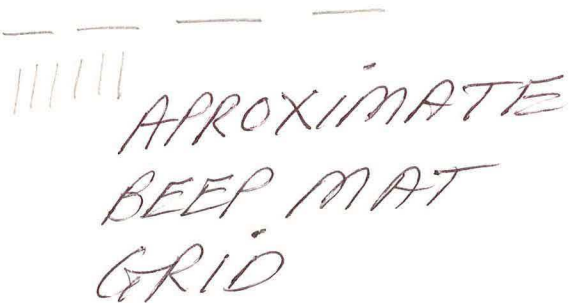 APROXIMATE
BEEP MAT
GRID